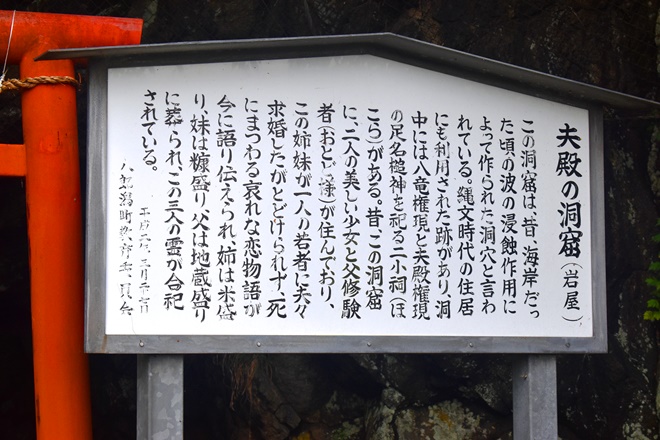 夫殿の洞窟(岩屋)
この洞窟は、昔、海岸だっ
た頃の波の浸蝕作用に
よって作られた洞穴と言わ
れている。縄文時代の住居
にも利用された跡があり、洞
中には八竜権現と夫殿権現
の足名槌神を祀る二小祠(ほ
こら)がある。昔、この洞窟
に、二人の美しい少女と父修験
者(おとど様)が住んでおり、
この姉妹が一人の若者に夫々
求婚したがとどけられず、死
にまつわる哀れな恋物語が
今に語り伝えられ、姉は米盛
り、妹は糠盛り、父は地蔵盛り
に葬られ、この三人の霊が合祀
されている。
平成二年三月
八郎潟町教育委員会